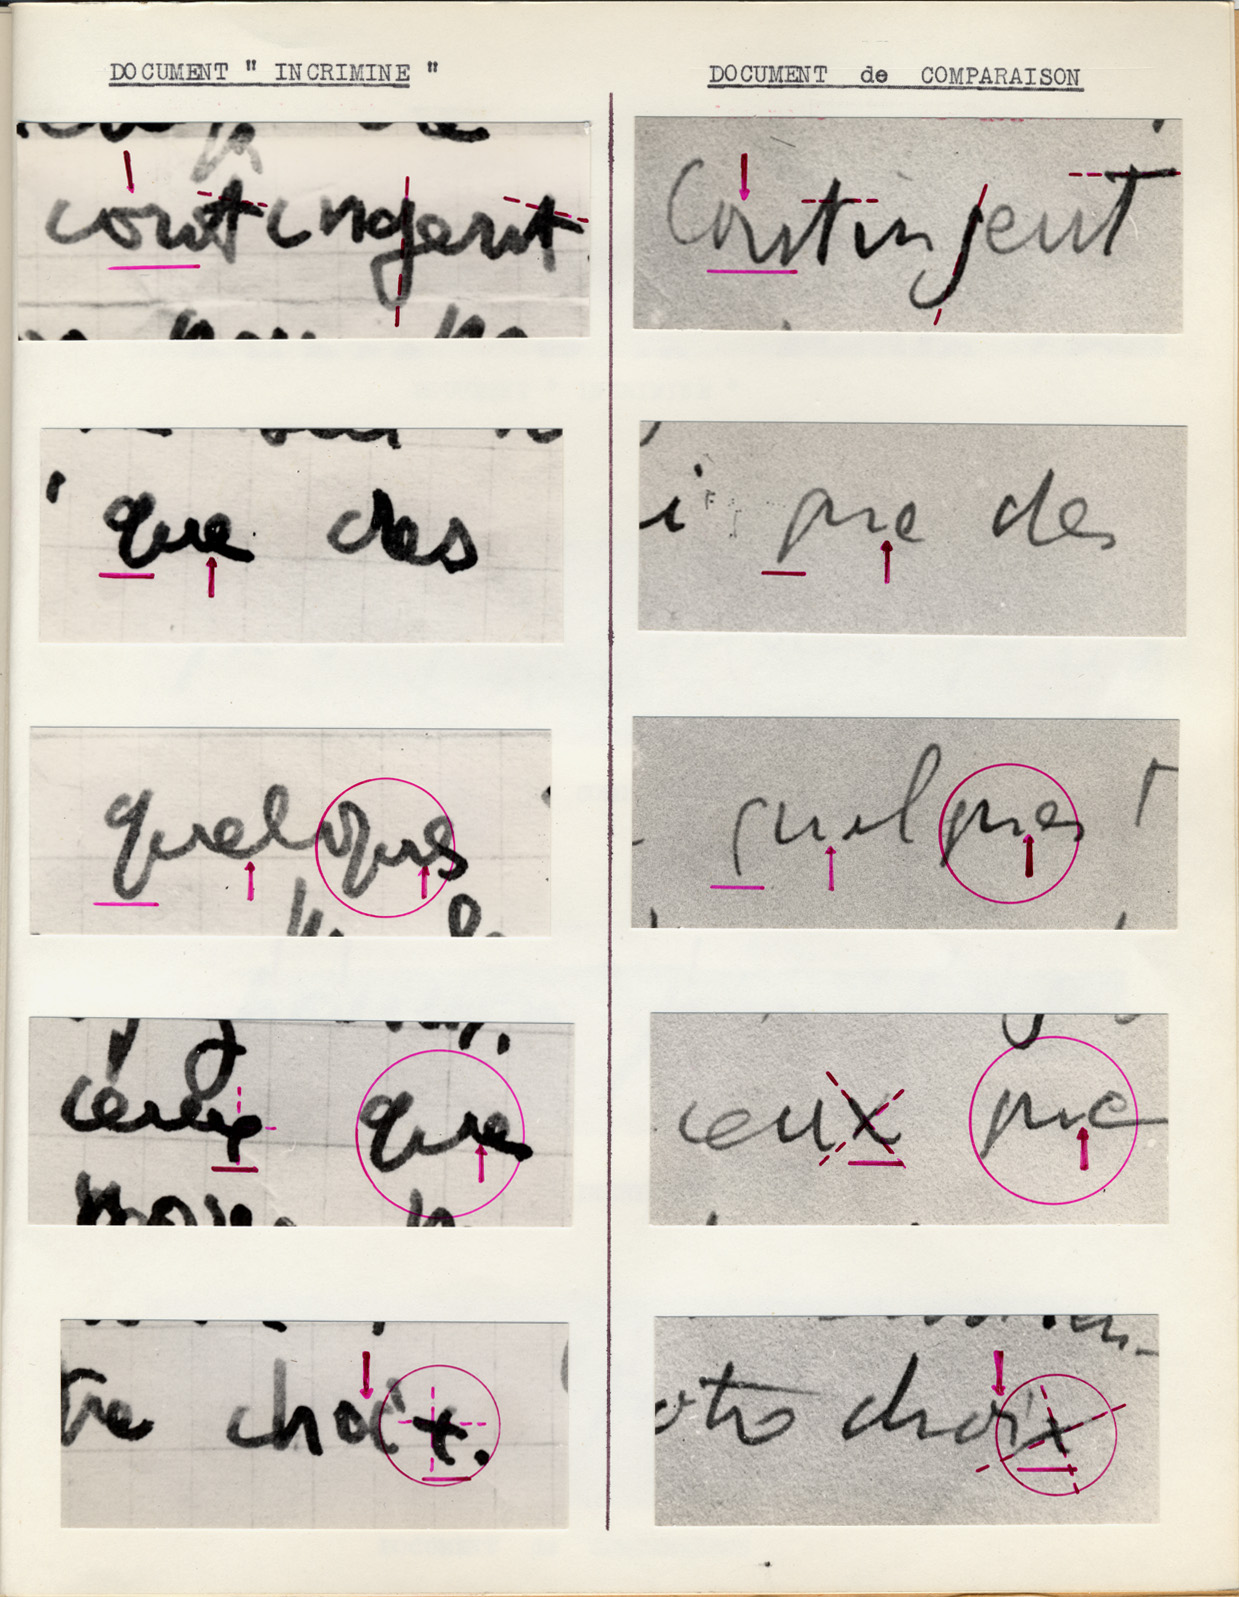 DOCUMENT " INCRIMINE "
DOCUMENT de COMPARAISON
contingent
Contingent
que des
i que des
quelques
quelques
ceux que
ceux que
tre choix.
otre choix